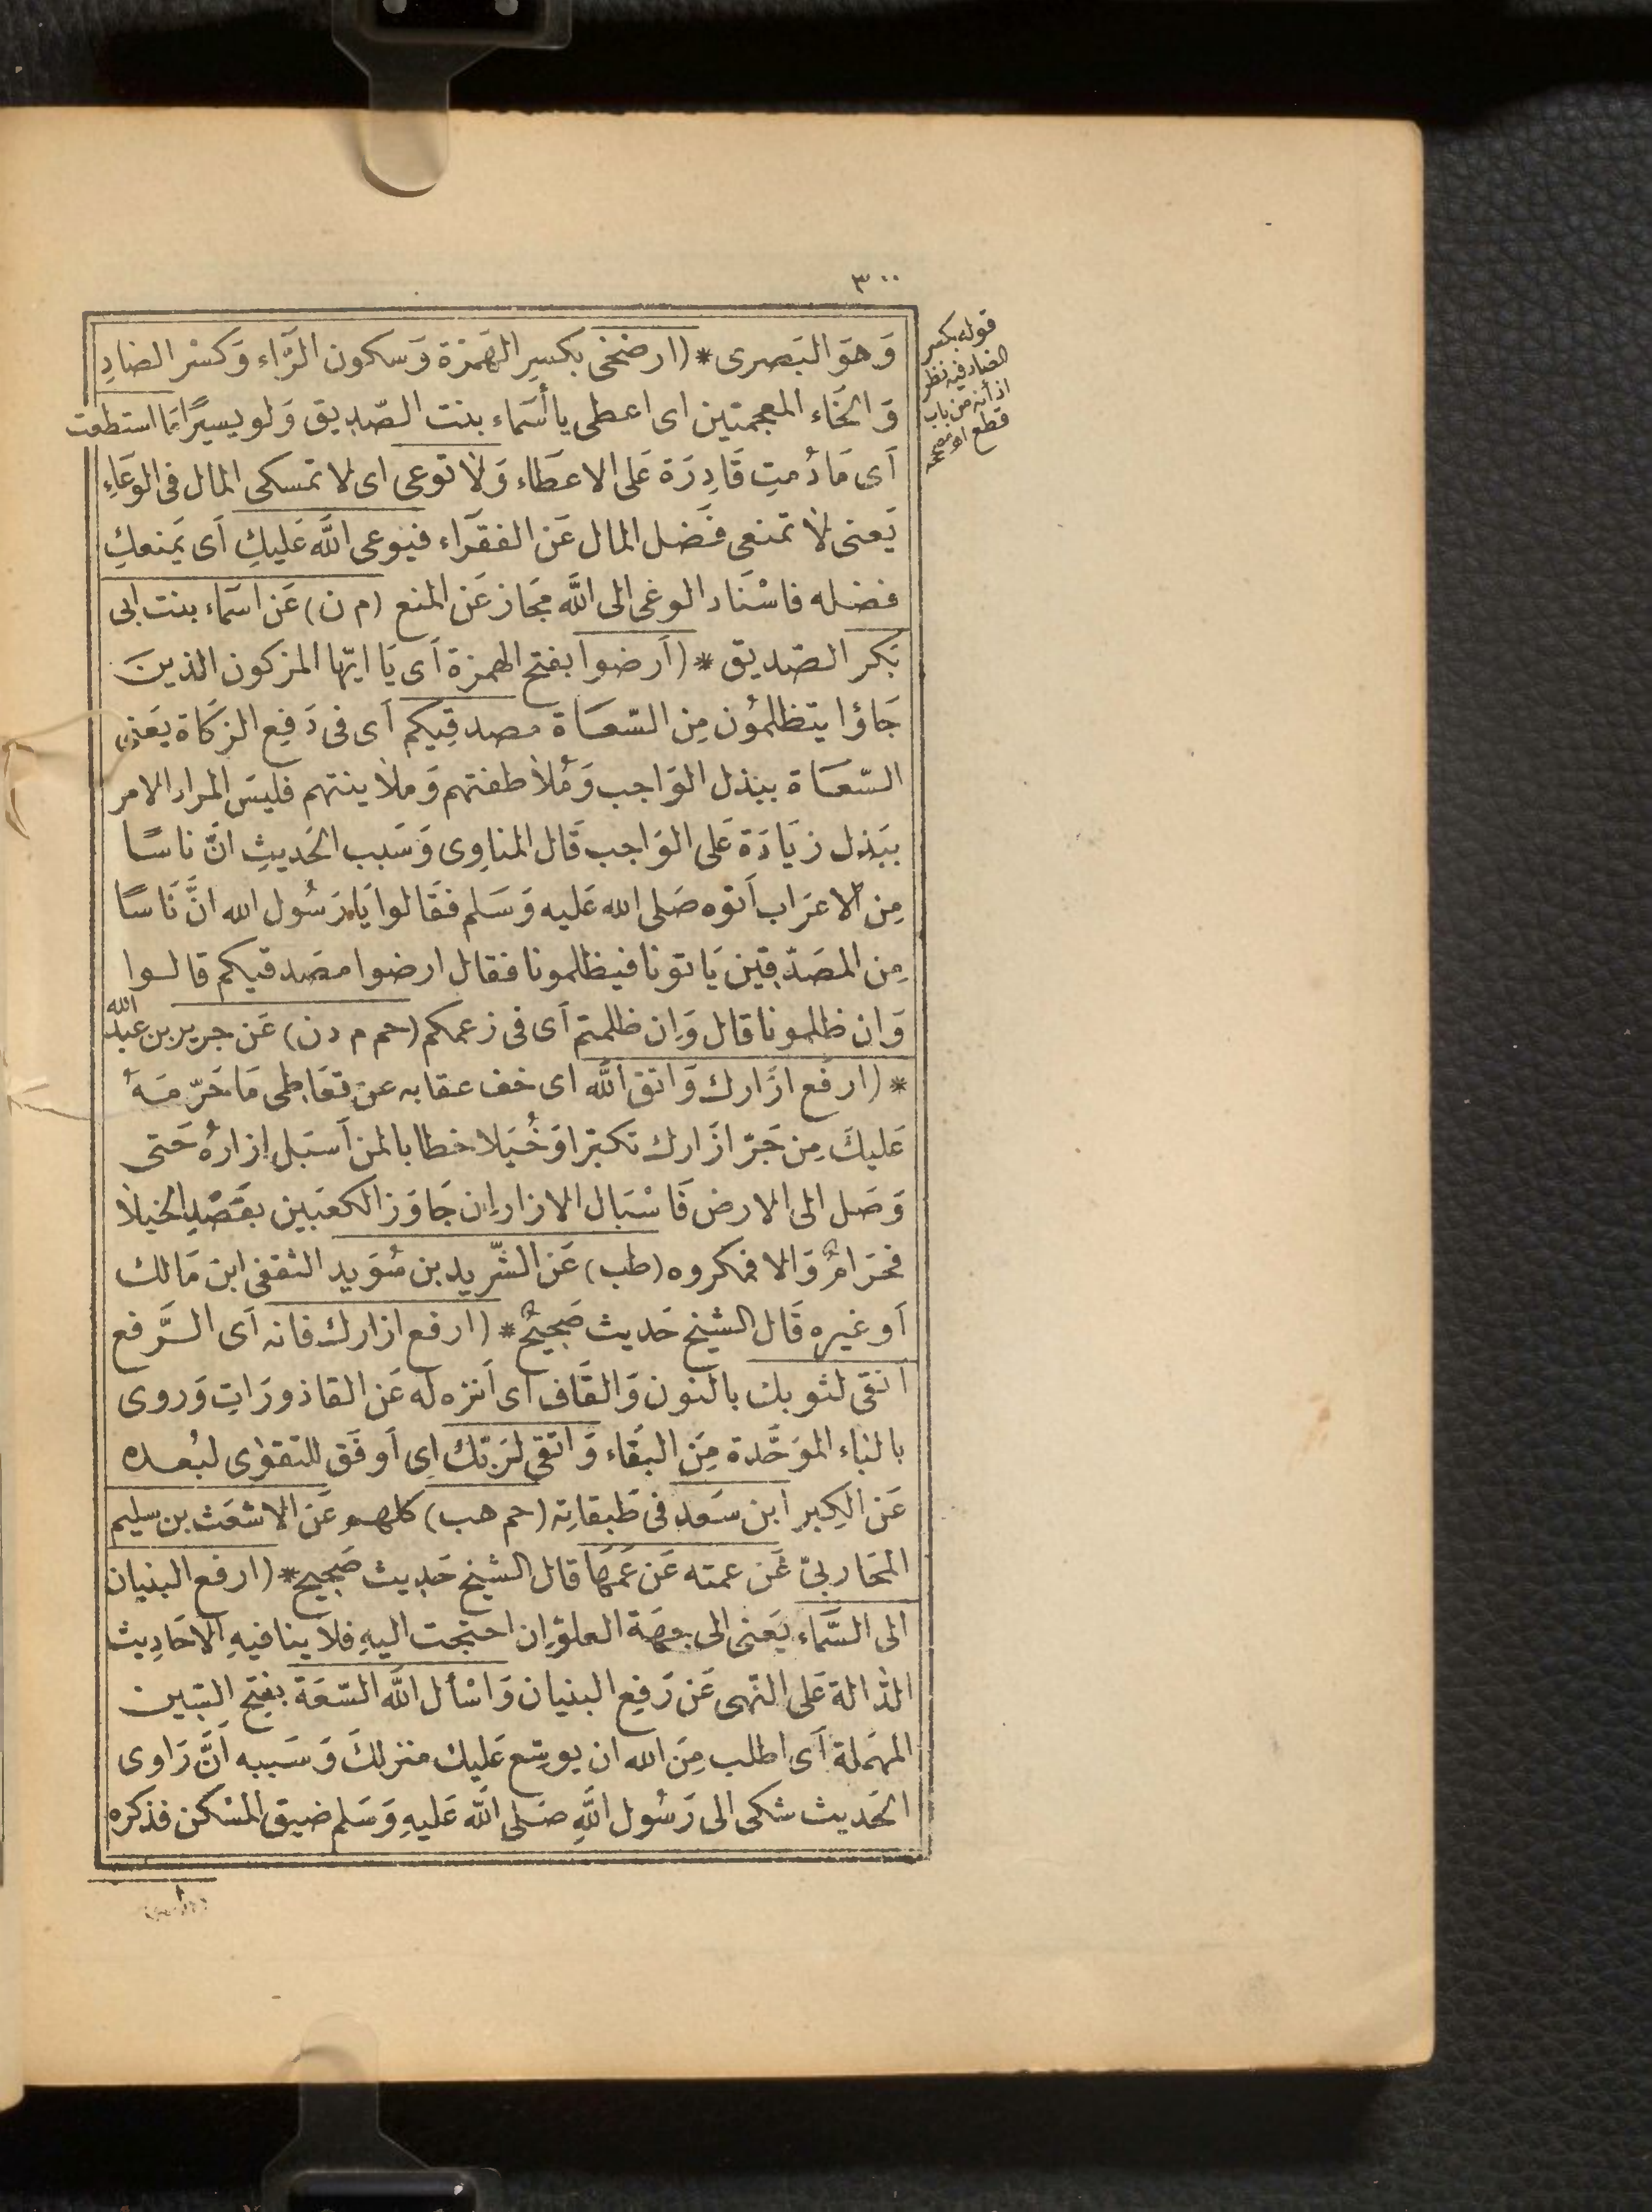 ٣٠٠
وَهوَ البَصرى * (ارضخى بكسِر الهَمزة وَسكون الرَّاء وَكسْر الضادِ
وَالخَاء المعجمتين اى اعطى يا أسَماء بنت الصّديق وَلو يسيرًا مَا استطعت
اَى مَا دُمتِ قَادِرَة عَلى الاعطَاء وَلَا توعى اى لا تمسكى المال فى الوعَاءِ
يَعنى لَا تمنعى فَضل المال عَن الفقرَاء فيوعى اللَّه عَليكِ اَى يَمنعكِ
فضله فاسْنَاد الوعى الى اللَّه مَجاز عَن المنع (م ن) عَن اسمَاء بنت ابى
بَكر الصّديق * (اَرضوا بفتح الهمزة اَى يَا ايّها المزكون الذينَ
جَاؤا يتظلمؤن مِن السّعَاة مصدقِيكم اَى فى دَفِع الزكاة يَعنى
السّعَاة ببذل الوَاجب وَمُلاطفتهم وَملَاينتهم فليسَ المراد الامر
ببَذل زيَادَة عَلى الوَاجب قَال المناوِى وَسَبب الحَديثِ انَّ ناسًا
مِن الاعرَاب اَتوه صَلى الله عَليه وَسَلم فقَالوا يَا رَسُول الله انَّ نَاسًا
مِن المصَدّقِين يَاتونا فيظلمونا فقال ارضوا مصَدقيكم قالوا
وَان ظلمونا قال وَاِن ظلمتم اَى فى زعمكم (حم م دن) عَن جرير بن عبد الله
* (ارفَع ازَارك وَاتق اللَّه اى خف عقابه عن تعَاطى مَا حَرّمَهُ
عَليكَ مِن جَرّ ازَارك تكبّرا وَخُيَلا خطابا لمن اَسبَل اِزارهُ حَتى
وَصَل الى الارض فَاسْبَال الازار اِن جَاوَز الكعبَين بقَصْدِ الخيلَا
فحَرَامٌ وَالا فمكروه (طب) عَن الشّريد بن سُوَيد الثقفى ابن مَالك
اَو غيره قَال الشيخ حَديث صَحِيحٌ * (ارفع ازارك فانه اَى الرَّفع
انقى لثوبك بالنون وَالقَاف اى اَنزه له عَن القاذورَاتِ وَروى
بالبَاء الموَحَّدة مِنَ البقَاء وَاتقى لرَبّك اِى اَوفَق للتقوٰى لبُعده
عَن الكِبر ابن سَعد فى طَبقاتِه (حم هب) كلهم عَن الاشعَث بن سليم
المَحاربىّ عَن عمته عَن عَمهَا قال الشيخ حَديث صَحِيح * (ارفع البنيان
الى السَّمَاء يَعنى الى جهَة العلوّ اِن احتجت اليهِ فلا ينافيهِ الاحَادِيث
الدَّالة عَلى النّهى عَن رَفِع البنيان وَاسْأل اللَّه السّعَة بفتح السّين
المهمَلة اَى اطلب مِنَ الله ان يوسّع عَليك منزلكَ وَسَببه انَّ رَاوى
الحَديث شكى الى رَسُول اللَّهِ صَلى اللَّه عَليهِ وَسَلم ضيق المسْكن فذكره
قوله بكسر
الضاد فيه نظر
اذ أنه من باب
قطع اه مصححه